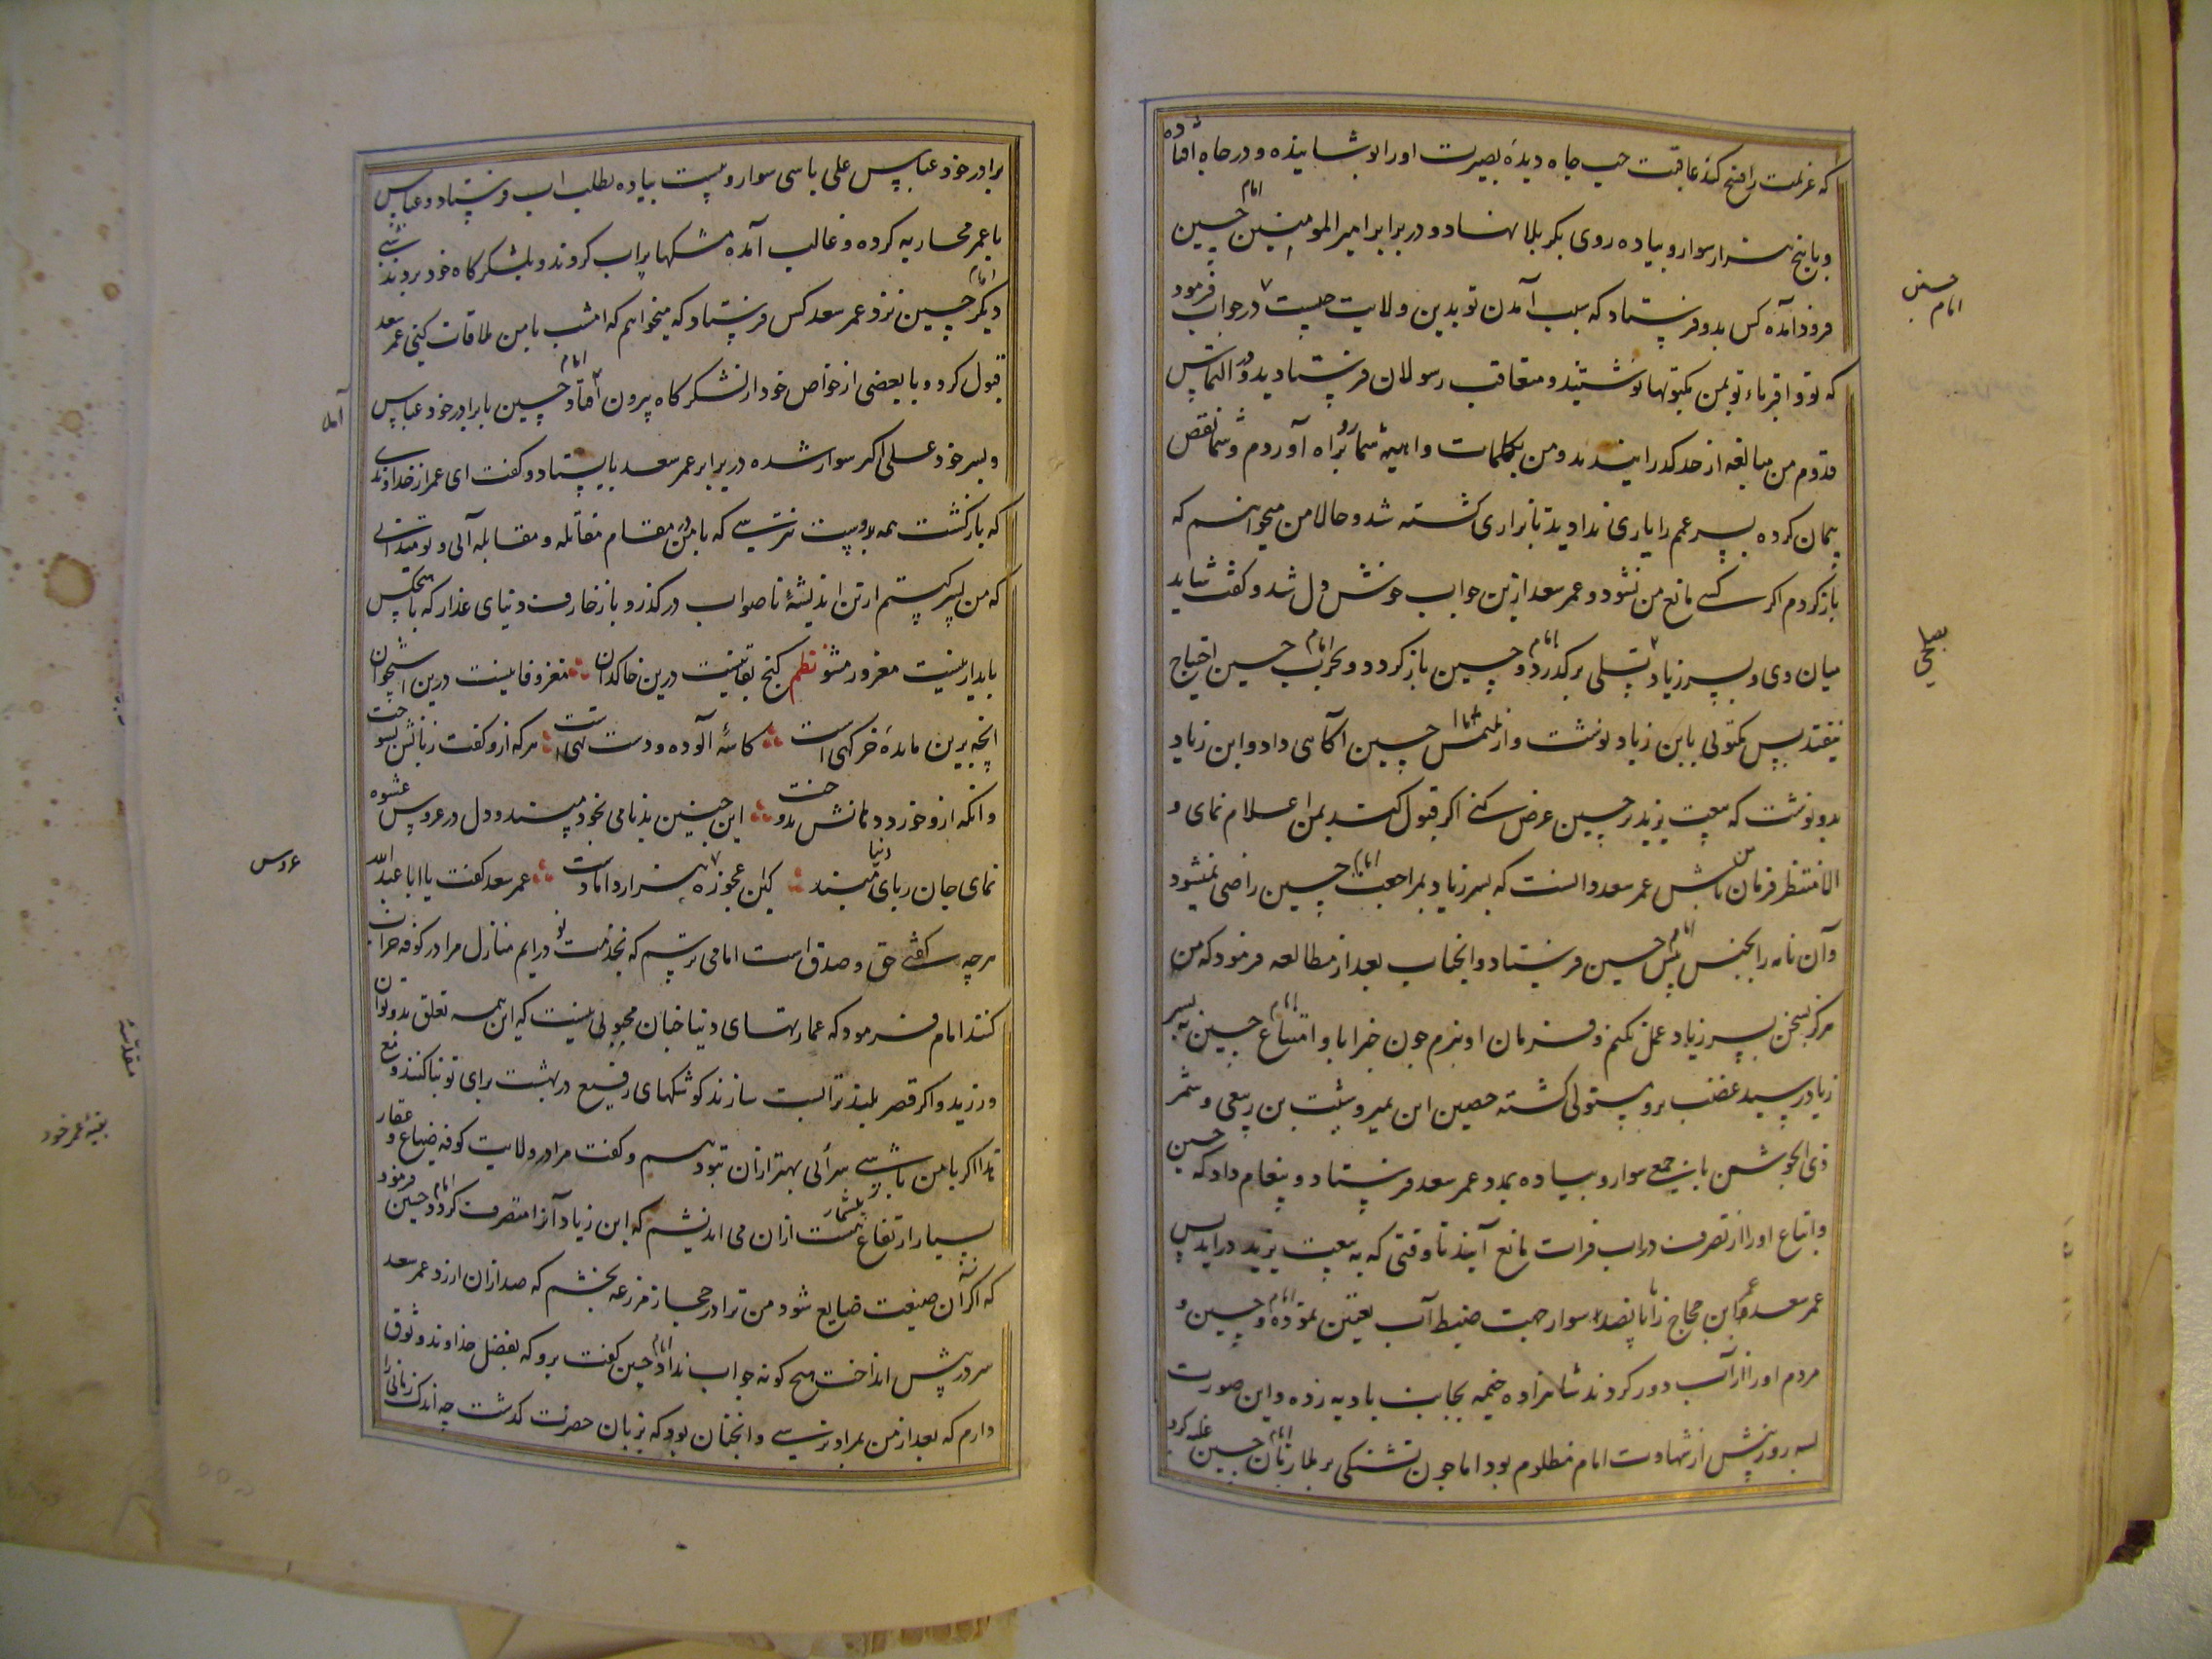 که عزلمت را فتح کند عاقبت حب جاه دیدهٔ بصیرت او را پوشانیده و در چاه افتاده
و با پنج هزار سوار و پیاده روی بکربلا نهاد و در برابر امیرالمومنین امام حسین
فرود آمده کس بدو فرستاد که سبب آمدن تو بدین ولایت چیست در جواب فرمود
که تو و اقرباء تو بمن مکتوبها نوشتند و متعاقب رسولان فرستادید و در التماس
قدوم من مبالغه از حد گذرانیدند و من بکلمات واهیه شما رو براه آوردم و شما نقض
پیمان کرده پسر عمم را یاری ندادید تا بزاری کشته شد و حالا من میخواهم که
بازگردم اگر کسی مانع من نشود و عمر سعد ازین جواب خوش دل شد و گفت شاید
میان وی و پسر زیاد تسلی برگذرد و امام حسین بازگردد و بحرب امام حسین احتیاج
نیفتد پس مکتوبی بابن زیاد نوشت و از ملتمس امام حسین آگاهی داد و ابن زیاد
بدو نوشت که بیعت یزید بر حسین عرض کن اگر قبول کند بمن اعلام نمای و
الا منتظر فرمان من باش عمر سعد دانست که پسر زیاد بمراجعت امام حسین راضی نمیشود
و آن نامه را بجنس پیش امام حسین فرستاد و آنجناب بعد از مطالعه فرمود که من
هرگز بسخن پسر زیاد عمل نکنم و فرمان او نبرم چون خبر ابا و امتناع امام حسین به پسر
زیاد رسید غضب برو مستولی گشته حصین ابن نمیر و شبث بن ربعی و شمر
ذی الجوشن با جمعی سوار و پیاده بمدد عمر سعد فرستاد و پیغام داد که حسین
و اتباع او را از تصرف در آب فرات مانع آیند تا وقتی که به بیعت یزید درآید پس
عمر سعد عمر ابن حجاج را با پانصد سوار جهت ضبط آب تعیین نموده و امام حسین و
مردم او را از آب دور کردند شاهزاده خیمه بجانب بادیه زده و این صورت
سه روز پیش از شهادت امام مظلوم بود اما چون تشنگی بر ملازمان امام حسین غلبه کرد
امام حسین
برادر خود عباس علی با سی سوار و بیست پیاده بطلب آب فرستاد و عباس
با عمر محاربه کرده و غالب آمده مشکها پر آب کردند و بلشکرگاه خود بردند شبی
دیگر امام حسین نزد عمر سعد کس فرستاد که میخواهم که امشب با من ملاقات کنی عمر سعد
قبول کرد و با بعضی از خواص خود از لشکرگاه بیرون آمد و امام حسین با برادر خود عباس
و پسر خود علی اکبر سوار شده در برابر عمر سعد بایستاد و گفت ای عمر از خداوندی
که بازگشت همه بدوست نترسی که با من در مقام مقاتله و مقابله آئی و تو میدانی
که من پسر کیستم ازین اندیشهٔ ناصواب درگذر و بزخارف دنیای غدار که با هیچکس
پایدار نیست مغرور مشو نظم گنج بقا نیست درین خاکدان مغز وفا نیست درین استخوان
آنچه برین مایدهٔ خرگهی است کاسهٔ آلوده و دست تهی است هر که ازو گفت زبانش بسوخت
وانکه ازو خورد دهانش بدوخت این چنین بدنامی بخود مپسند و دل در عروس عشوه
نمای جان ربای دنیا مبند کین عجوزه هزار دامادست عمر سعد گفت یا ابا عبدالله
هر چه گفتی حق و صدق است اما می ترسم که بخدمت تو درایم منازل مرا در کوفه خراب
کنند امام فرمود که عمارتهای دنیا چنان محبوبی نیست که این همه تعلق بدو توان
ورزید و اگر قصر بلند ترا پست سازند کوشکهای رفیع در بهشت برای تو بنا کنند
اگر با من باشی سرائی بهتر از آن بتو دهم و گفت مرا در ولایت کوفه ضیاع و عقار
بسیار و ارتفاع بیشمار هست ازان می اندیشم که ابن زیاد آنرا متصرف گردد امام حسین فرمود
که اگر آن ضیعت ضایع شود من ترا در حجاز مزرعه بخشم که صد ازان ارزد عمر سعد
سر در پیش انداخت هیچ گونه جواب نداد امام حسین گفت برو که بفضل خداوند وثوق
دارم که بعد از من بمراد نرسی و آنچنان بود که بزبان حضرت گذشت چه اندک زمانی را
آمد
عروس